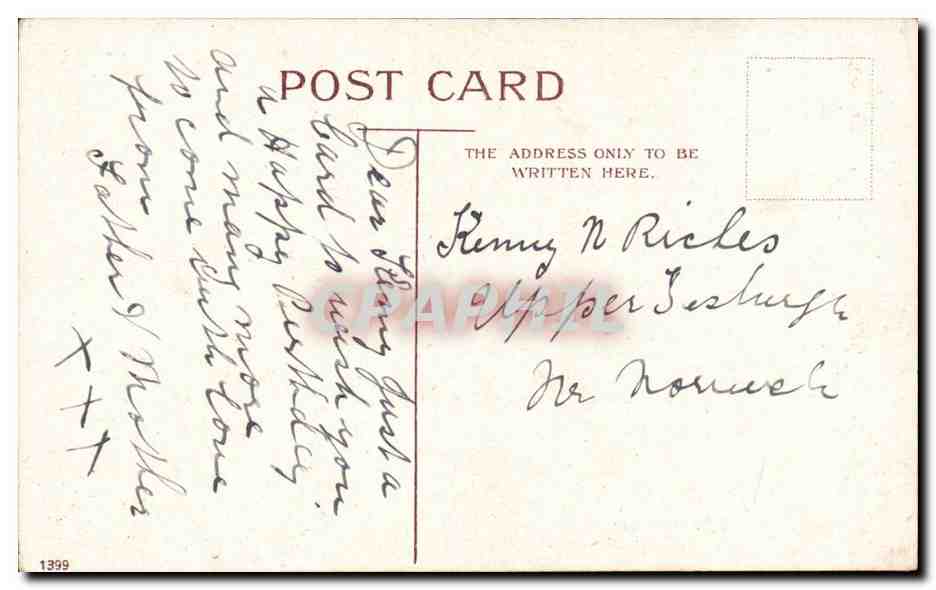 POST CARD
THE ADDRESS ONLY TO BE
WRITTEN HERE.
Dear Kenny Just a
Card to wish you
a Happy Birthday
and many more
to come with love
from
Father & Mother
x x x
Kenny N Riches
Upper Tesburgh
Nr Norwich
CPAPHIL
1399